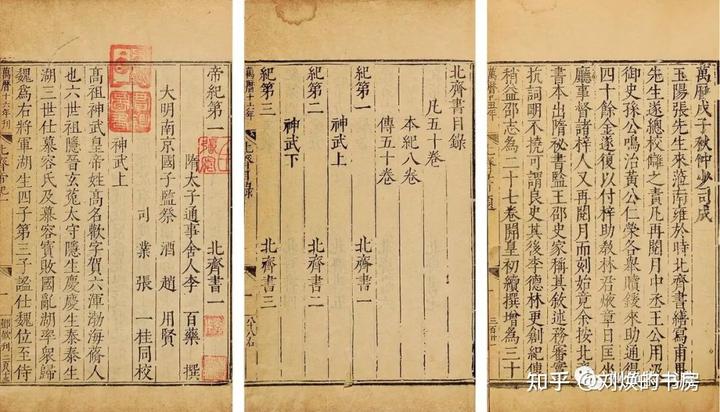 萬曆戊子秋仲少司成
玉陽張先生來蒞南雍於時北齊書繕寫甫畢
先生遂總校讎之責凡再閱月中丞王公用汲
御史孫公鳴治黃公仁榮各舉贖鍰來助通得
四十餘金遂復以付梓助敎林君烴章日匡坐
廳事督諸梓人又再閱月而刻始竟余按北齊
書本出隋祕書監王邵史家稱其敘述務審實
抗詞明不撓可謂良史其後李德林更創紀傳
稍益邵志為二十七卷開皇初續撰增為三十
北齊書目錄
凡五十卷
本紀八卷
傳五十卷
紀第一 北齊書一
神武上
紀第二 北齊書二
神武下
紀第三 北齊書三
帝紀第一 北齊書一
隋太子通事舍人李百藥撰
大明南京國子監祭酒趙用賢
司業張一桂同校
神武上
高祖神武皇帝姓高名歡字賀六渾渤海蓨人
也六世祖隱晉玄菟太守隱生慶慶生泰泰生
湖三世仕慕容氏及慕容寶敗國亂湖率衆歸
魏爲右將軍湖生四子第三子謐仕魏位至侍
萬曆十六年刊
知乎 @刘焕的书房